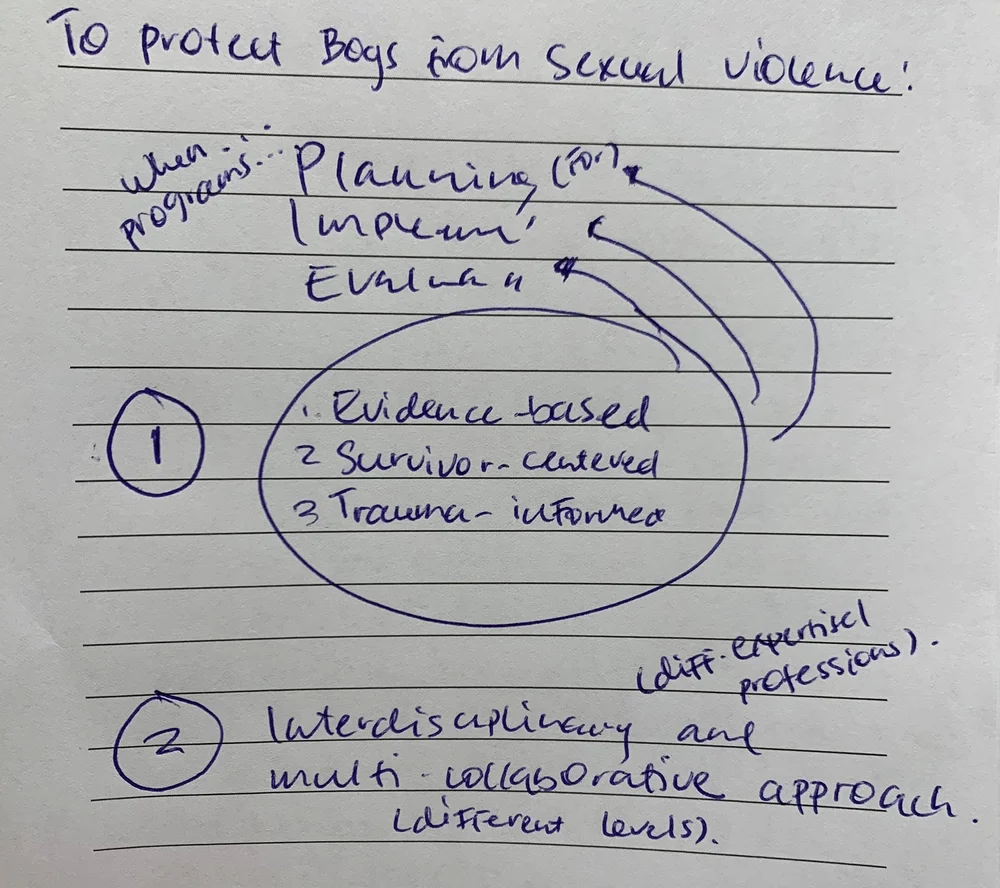 To protect Boys from Sexual violence:
when...
programs...
Planning (for)
Implem'
Evalua
1
1. Evidence-based
2 Survivor-centered
3 Trauma-informed
(diff. expertise/
professions).
2
Interdisciplinary and
multi-collaborative approach.
(different levels).